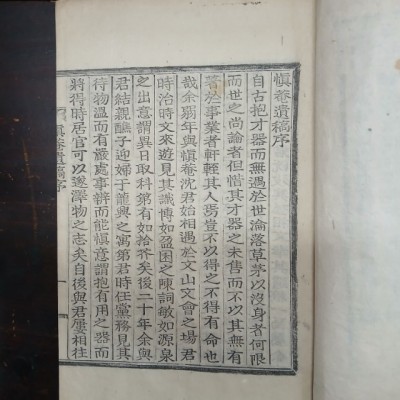 愼菴遺稿序
自古抱才器而無遇於世淪落草茅以沒身者何限
而世之尚論者但惜其才器之未售而不以其無
著於事業者軒輊其人焉豈不以得之不得有命也
哉余弱年與愼菴沈君始相遇於文山文會之場君
時治時文來遊見其識博如盈囷之陳詞敏如源泉
之出意謂異日取科第有如拾芥矣後二十年余與
君結親醮子迎婦于龍興之寓第君時任黨務見其
待物溫而有嚴處事辨而能愼意謂抱有用之器而
將得時居官可以遂澤物之志矣自後與君屢相往
愼菴遺稿序